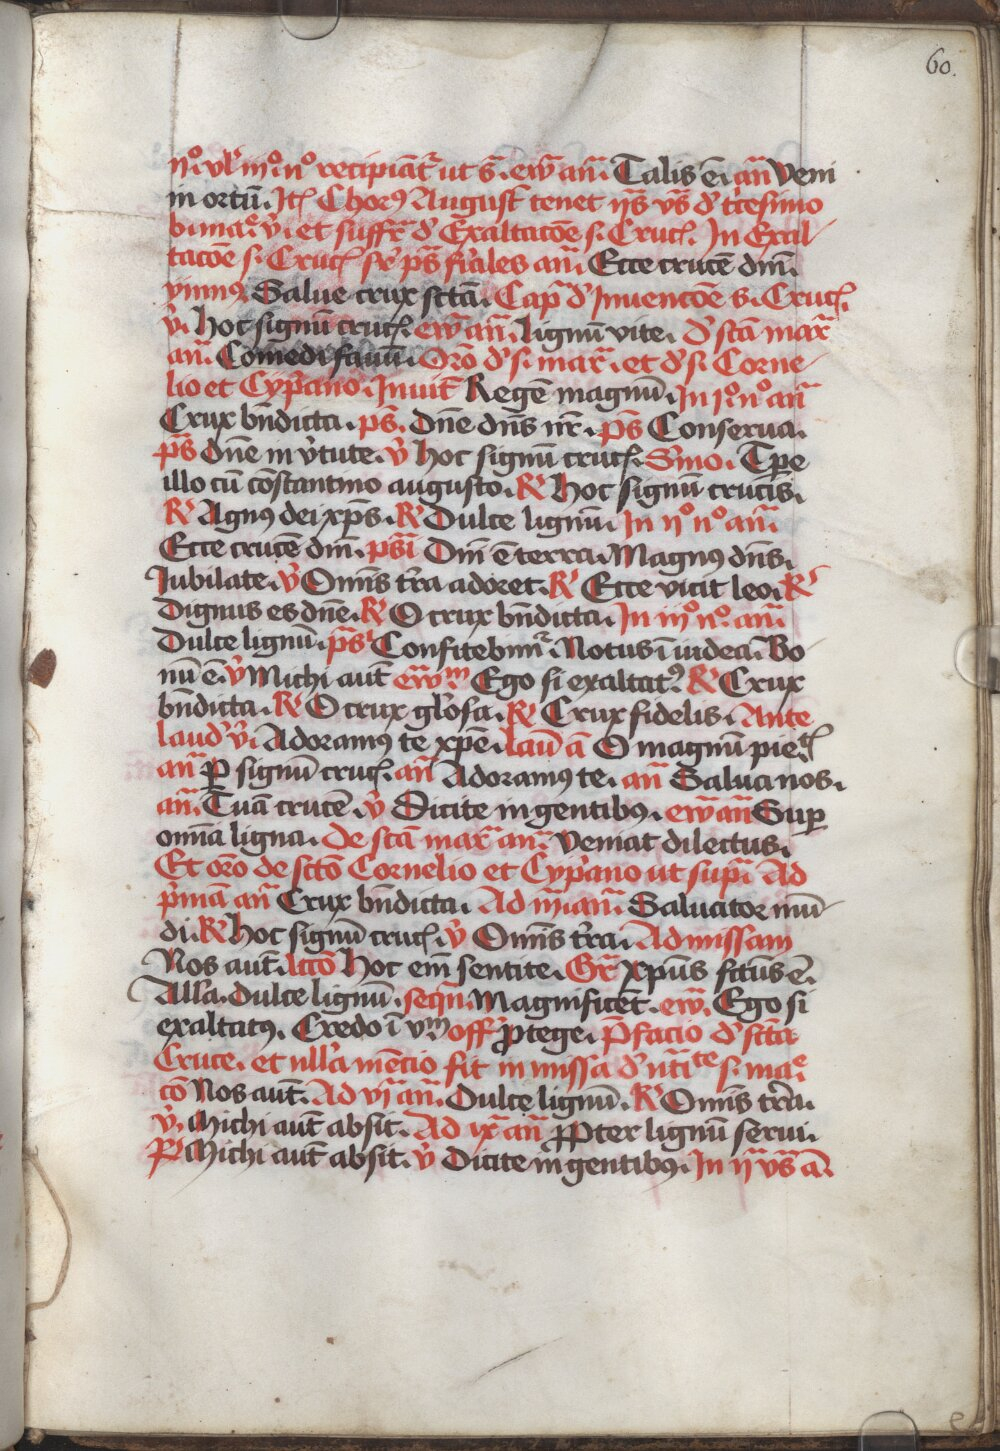 60.
ijº. vl' iijº nº recipiant᷑ ut s̄. ew̄ an̄. Talis ē. an̄ Veni
in ortū. Itē Chorꝰ August tenet ijs̄ vs̄ d' tricesimo
et suffr̄ d' Exaltacōe s. Cruc̄. In Exal
tacōe s. Cruc̄ sr̄ ps̄ fr̄iales an̄. Ecce crucē dn̄i.
ymnꝰ. Salue crux sctā. Cap̄ d' Inuencōe s. Cruc̄.
v̄. hoc signū cruc̄ ew̄ an̄. lignū vite. d' sctā mar̄
an̄. Comedi fauū. Orō d' s. mar̄. et d' s. Corne
lio et Cyp̄ano. Inuit̄ Regē magnū. In jº. nº an̄
Crux bn̄dicta. ps̄. Dn̄e dn̄s nr̄. ps̄ Conserua.
ps̄ dn̄e in v̄tute. v̄ hoc signū cruc̄. S'mo. Tp̄e
illo cū cōstantino augusto. R̄ hoc signū crucis.
R̄ Agnꝰ dei xp̄s. R̄ Dulce lignū. In ijº nº an̄.
Ecce crucē dn̄i. ps̄i Dn̄i ē terra. Magnꝰ dn̄s.
Iubilate. v̄ Omīs t'ra adoret. R̄ Ecce vicit leo. R̄
Dignus es dn̄e. R̄ O crux bn̄dicta. In iijº nº. an̄.
Dulce lignū. ps̄ Confitebim̄. Notus ī iudea. Bo
nū ē. v̄ Michi aut̄ ew̄m̄. Ego si exaltatꝰ. R̄ Crux
bn̄dicta. R̄ O crux gl'osa. R̄ Crux fidelis. Ante
laud' v̄. Adoramꝰ te xp̄e. Lau' a' O magnū piet̄
an̄ P̱ signū cruc̄. an̄ Adoramꝰ te. an̄ Salua nos.
an̄. Tuā crucē. v̄ Dicite in gentibꝰ. ew̄ an̄ Sup̱
omīa ligna. De sctā mar̄ an̄. Veniat dilectus.
Et orō de sctō Cornelio et Cyp̄ano ut sup̄. Ad
p'mā an̄ Crux bn̄dicta. Ad iij an̄. Saluator mū
di. R̄ hoc signū cruc̄. v̄ Omīs t'ra. Ad missam
Nos aut̄. lccō hoc em̄ sentite. Gr̄ xp̄us fctūs ē.
All'a. Dulce lignū. seqū. Magnificēt. ew̄. Ego si
exaltatꝰ. Credo ī vm̄ off̄ p̱tege. P̄facio d' sctā
Cruce. et null'a mēcio fit in missa d' s. ma
cō Nos aut̄. Ad vj an̄. Dulce lignū. R̄ Omīs t'ra.
v̄. Michi aut̄ absit. Ad ix an̄ Pp̱ter lignū serui.
R̄ Michi aut̄ absit. v̄ Dicite in gentibꝰ. In ij vs̄ a'.